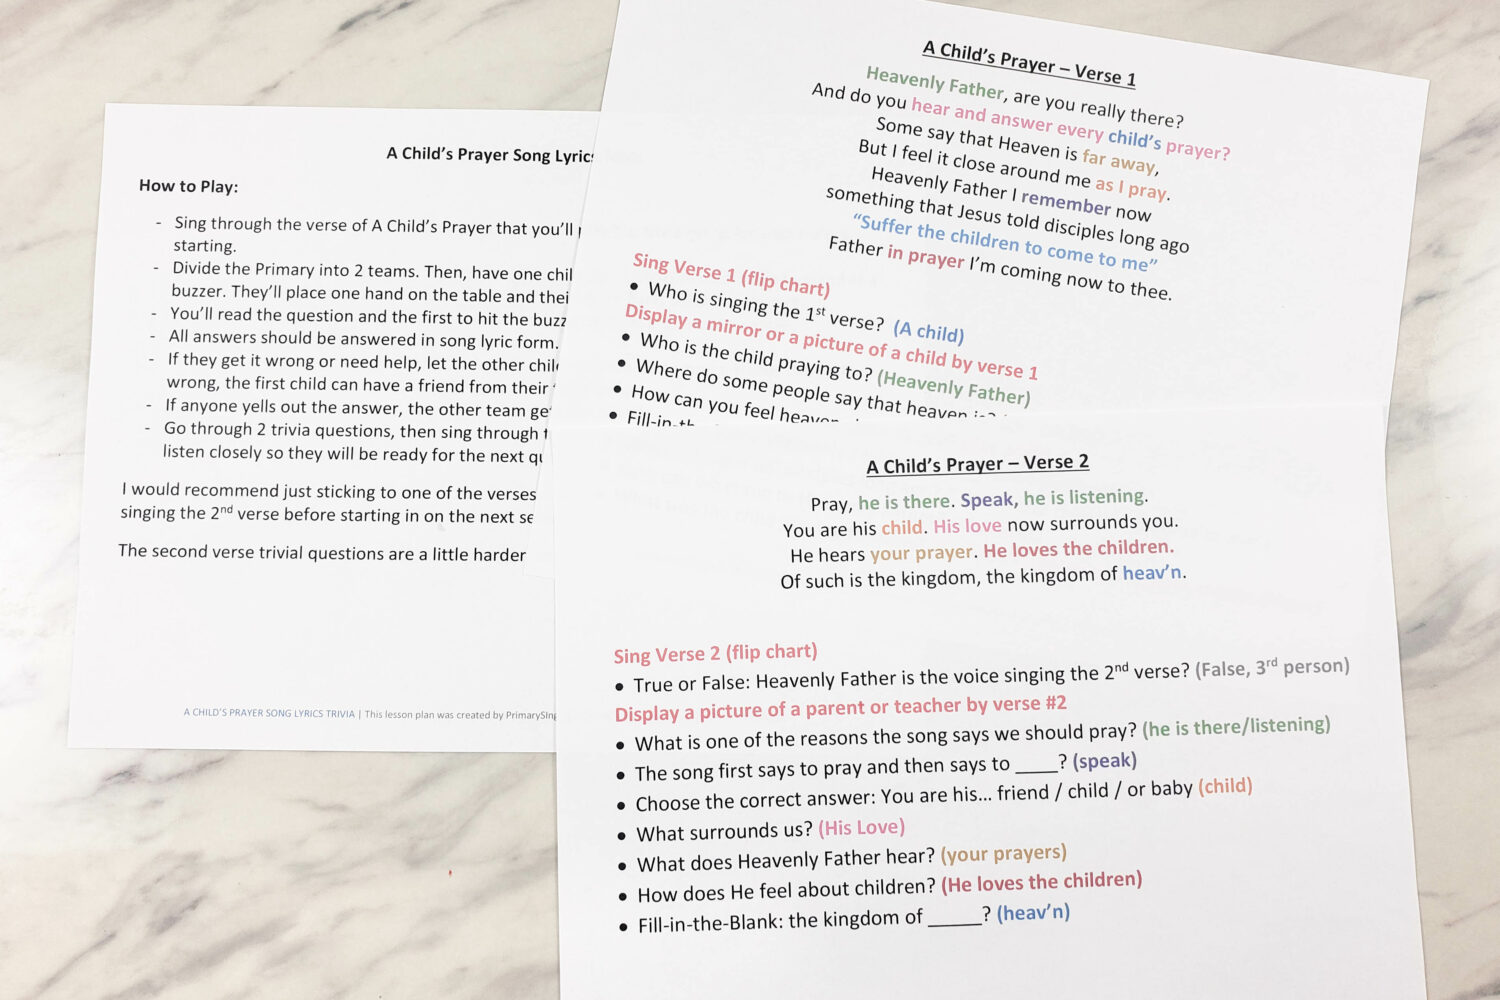 A Child's Prayer Song Lyrics
How to Play:
- Sing through the verse of A Child's Prayer that you'll
starting.
- Divide the Primary into 2 teams. Then, have one
buzzer. They'll place one hand on the table and
- You'll read the question and the first to hit the
- All answers should be answered in song lyric form.
- If they get it wrong or need help, let the other
wrong, the first child can have a friend from their
- If anyone yells out the answer, the other team
- Go through 2 trivia questions, then sing through
listen closely so they will be ready for the next
I would recommend just sticking to one of the verses
singing the 2nd verse before starting in on the next
The second verse trivial questions are a little harder
A CHILD'S PRAYER SONG LYRICS TRIVIA | This lesson plan was created by
A Child's Prayer – Verse 1
Heavenly Father, are you really there?
And do you hear and answer every child's prayer?
Some say that Heaven is far away,
But I feel it close around me as I pray.
Heavenly Father I remember now
something that Jesus told disciples long ago
“Suffer the children to come to me”
Father in prayer I'm coming now to thee.
Sing Verse 1 (flip chart)
• Who is singing the 1st verse? (A child)
Display a mirror or a picture of a child by verse 1
• Who is the child praying to? (Heavenly Father)
• Where do some people say that heaven is?
• How can you feel heaven
• Fill-in-the
A Child's Prayer – Verse 2
Pray, he is there. Speak, he is listening.
You are his child. His love now surrounds you.
He hears your prayer. He loves the children.
Of such is the kingdom, the kingdom of heav'n.
Sing Verse 2 (flip chart)
• True or False: Heavenly Father is the voice singing the 2nd verse? (False, 3rd person)
Display a picture of a parent or teacher by verse #2
• What is one of the reasons the song says we should pray? (he is there/listening)
• The song first says to pray and then says to ____? (speak)
• Choose the correct answer: You are his... friend / child / or baby (child)
• What surrounds us? (His Love)
• What does Heavenly Father hear? (your prayers)
• How does He feel about children? (He loves the children)
• Fill-in-the-Blank: the kingdom of _____? (heav'n)